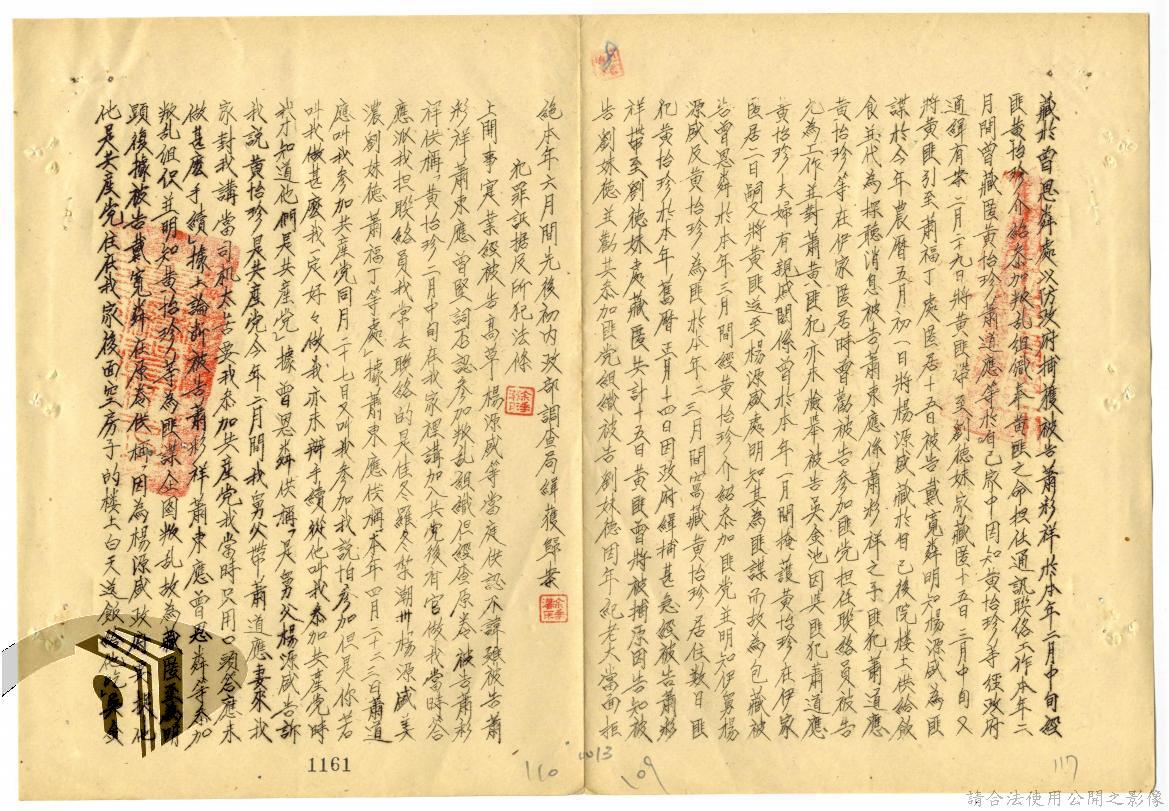 藏於曾恩粦處以防政府捕獲被告蕭彩祥於本年二月中旬經
匪黃怡珍介紹參加叛乱組織奉黃匪之命担任通訊聯絡工作本年二
月間曾藏匿黃怡珍蕭道應等於自己家中因知黃怡珍等經政府
通緝有案二月二十九日將黃匪帶至劉德妹家藏匿十五日三月中旬又
將黃匪引至蕭福丁處匿居十五日被告戴寬粦明知楊源盛為匪
諜於今年農曆五月初一日將楊源盛藏於自己後院樓上供給飲
食並代為探聽消息被告蕭東應係蕭彩祥之子匪犯蕭道應
黃怡珍等在伊家匿居時曾勸被告參加匪党担任聯絡員被告
允為工作並對蕭黃匪犯亦未檢舉被告吳金池因與匪犯蕭道應
黃怡珍夫婦有親戚關係曾於本年一月間掩護黃怡珍在伊家
匿居一日嗣又將黃匪送至楊源盛處明知其為匪諜而故為包藏被
告曾恩粦於本年三月間經黃怡珍介紹參加匪党並明知伊舅楊
源盛及黃怡珍為匪於本年二三月間窩藏黃怡珍居住數日匪
犯黃怡珍於本年舊曆正月十四日因政府緝捕甚急經被告蕭彩
祥帶至劉德妹處藏匿共計十五日黃匪曾將被捕原因告知被
告劉妹德並勸其參加匪党組織被告劉妹德因年紀老大當面拒
絕本年六月間先後初內政部調查局緝獲歸案
犯罪証據及所犯法條
上開事实業經被告高草楊源盛等當庭供認不諱雖被告蕭
彩祥蕭東應曾堅詞否認參加叛乱組織但經查原卷被告蕭彩
祥供稱「黃怡珍二月中旬在我家裡講加入共党後有官做我當時答
應派我担聯絡員我常去聯絡的是佳冬羅冬祭潮州楊源盛美
濃劉妹德蕭福丁等處」據蕭東應供稱「本年四月二十三日蕭道
應叫我參加共產党同月二十七日又叫我參加我說怕參加但是你若
叫我做甚麽我定好々做我亦未辦手續從他叫我參加共產党時
我才知道他們是共產党」據曾恩粦供稱「是舅父楊源盛告訴
我說黃怡珍是共產党今年二月間我舅父帶蕭道應妻來我
家對我講當司机太苦要我參加共產党我當時只用口頭答應未
做甚麽手續」據上論訴被告蕭彩祥蕭東應曾恩粦等參加
叛乱組織並明知黃怡珍等為匪諜企圖叛乱故為藏匿至為明
顕後據被告戴寬粦在原卷供稱「因為楊源盛政府要捉他
他是共產党住在我家後面空房子的樓上白天送飯給他吃
佘季
佘季
1161
110
0013
109
117
請合法使用公開之影像